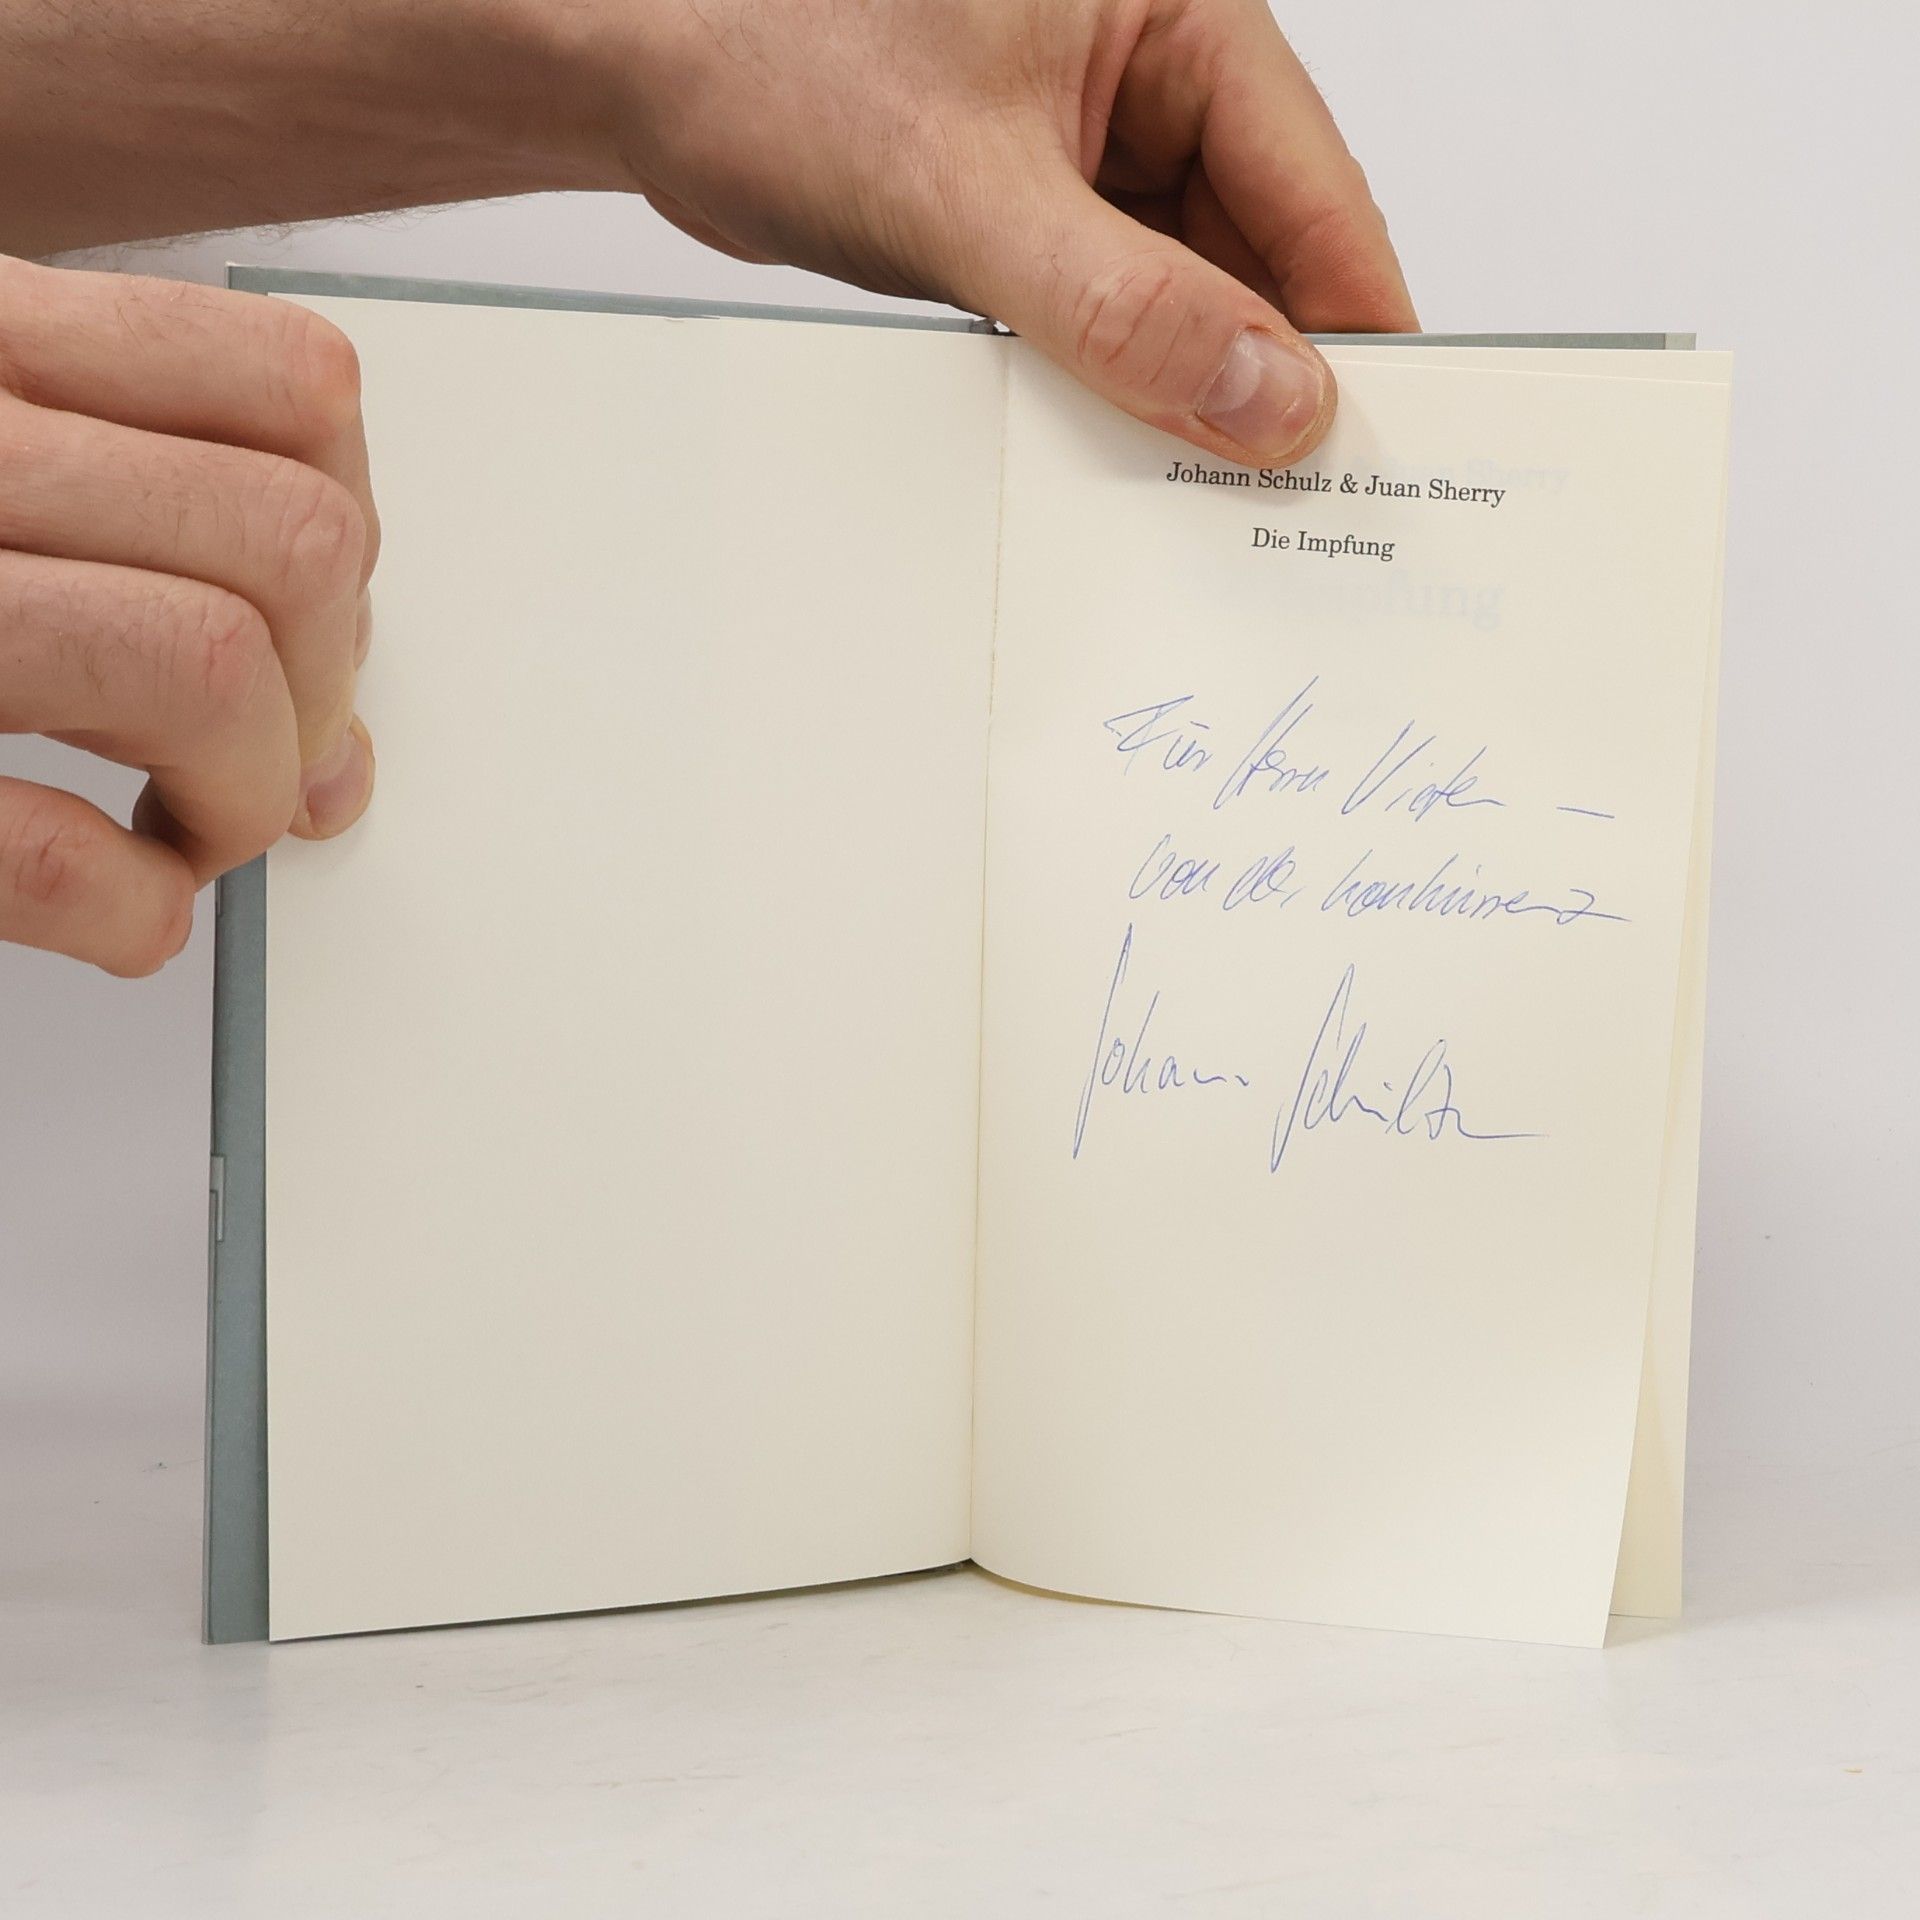 Johann Schulz & Juan Sherry
Die Impfung
Für Herrn
von der Konkurrenz
Johann Schulz